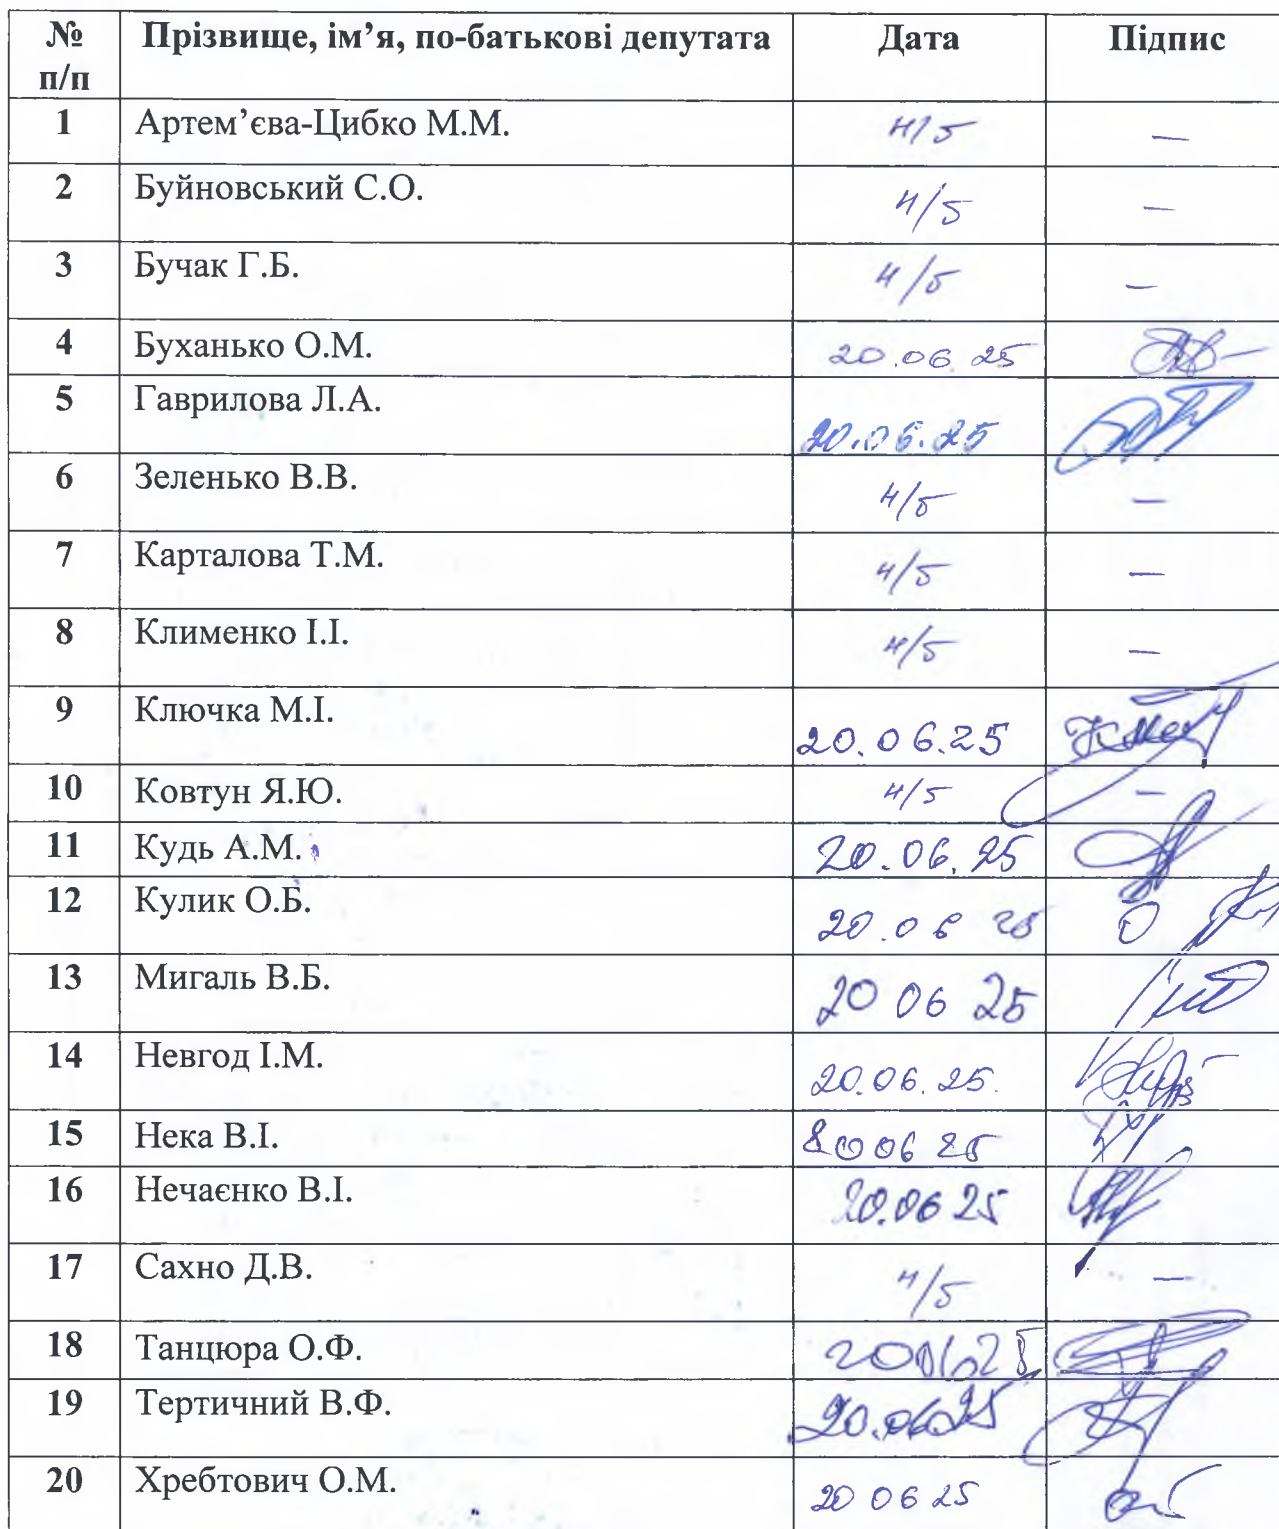 № п/п Прізвище, ім’я, по-батькові депутата Дата Підпис
1 Артем’єва-Цибко М.М. н/б —
2 Буйновський С.О. н/б —
3 Бучак Г.Б. н/б —
4 Буханько О.М. 20.06.25
5 Гаврилова Л.А. 20.06.25
6 Зеленько В.В. н/б —
7 Карталова Т.М. н/б —
8 Клименко І.І. н/б —
9 Ключка М.І. 20.06.25
10 Ковтун Я.Ю. н/б —
11 Кудь А.М. 20.06.25
12 Кулик О.Б. 20.06 25
13 Мигаль В.Б. 20 06 25
14 Невгод І.М. 20.06.25.
15 Нека В.І. 20 06 25
16 Нечаєнко В.І. 20.06 25
17 Сахно Д.В. н/б —
18 Танцюра О.Ф. 20.06.25
19 Тертичний В.Ф. 20.06.25
20 Хребтович О.М. 20 06 25